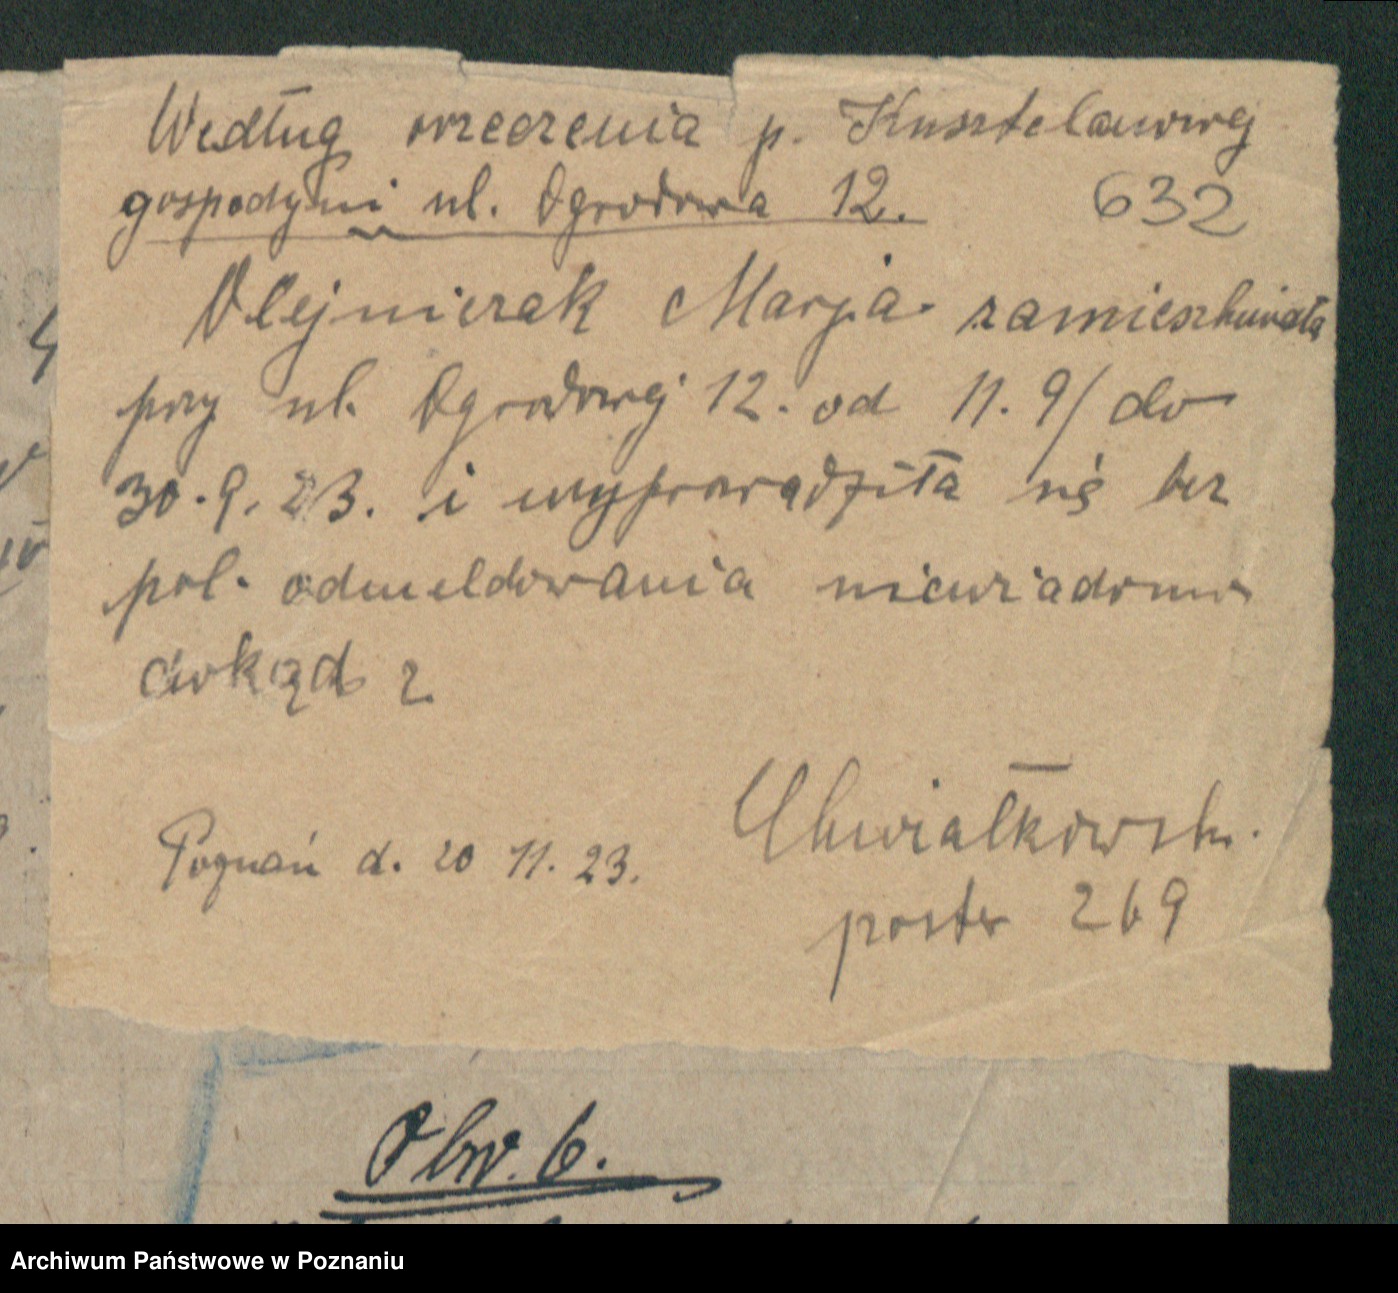 Według orzeczenia p. Kusztelanowej
gospodyni ul. Ogrodowa 12. 632
Olejniczak Marja zamieszkiwała
przy ul. Ogrodowej 12. od 11.9/ do
30.9.23. i wyprowadziła się bez
pol. odmeldowania niewiadomo
dokąd
Poznań d. 20 11. 23. Chwiałkowski.
poster 269
Obw. 6.
Archiwum Państwowe w Poznaniu